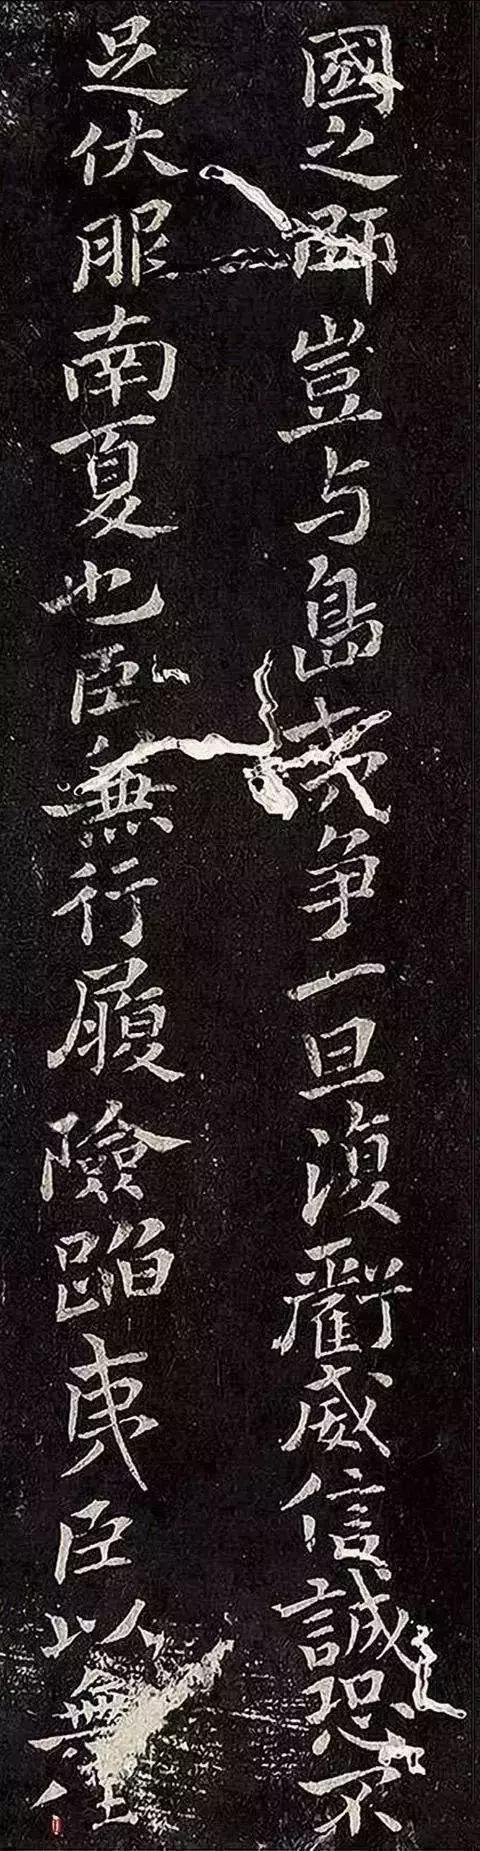 國之師豈与島夷争一旦復虧威信誠恐不
足伏服南夏也臣無行履險蹈夷臣以無